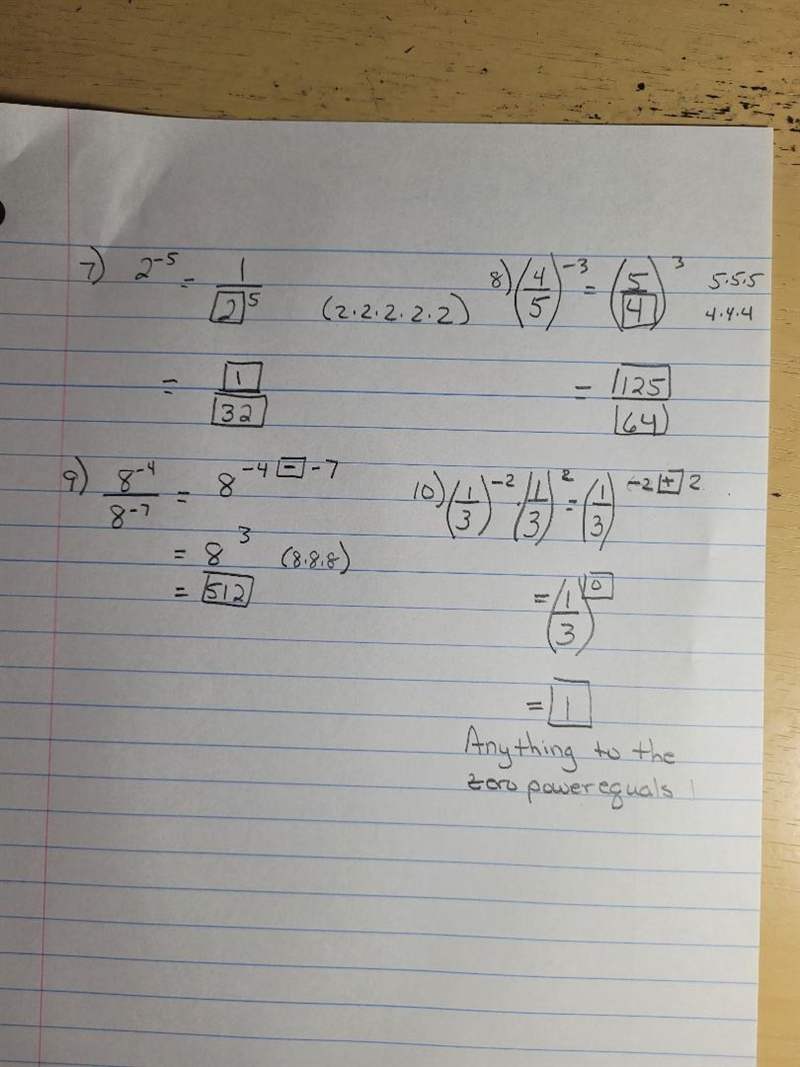 7) 2^-5 = 1/[2]^5 (2·2·2·2·2)
= [1]/[32]
8) (4/5)^-3 = (5/[4])^3 5·5·5 4·4·4
= [125]/[64]
9) 8^-4/8^-7 = 8^-4 [-] -7
= 8^3 (8·8·8)
= [512]
10) (1/3)^-2 · (1/3)^2 = (1/3)^-2 [+] 2
= (1/3)^[0]
= [1]
Anything to the
zero power equals 1